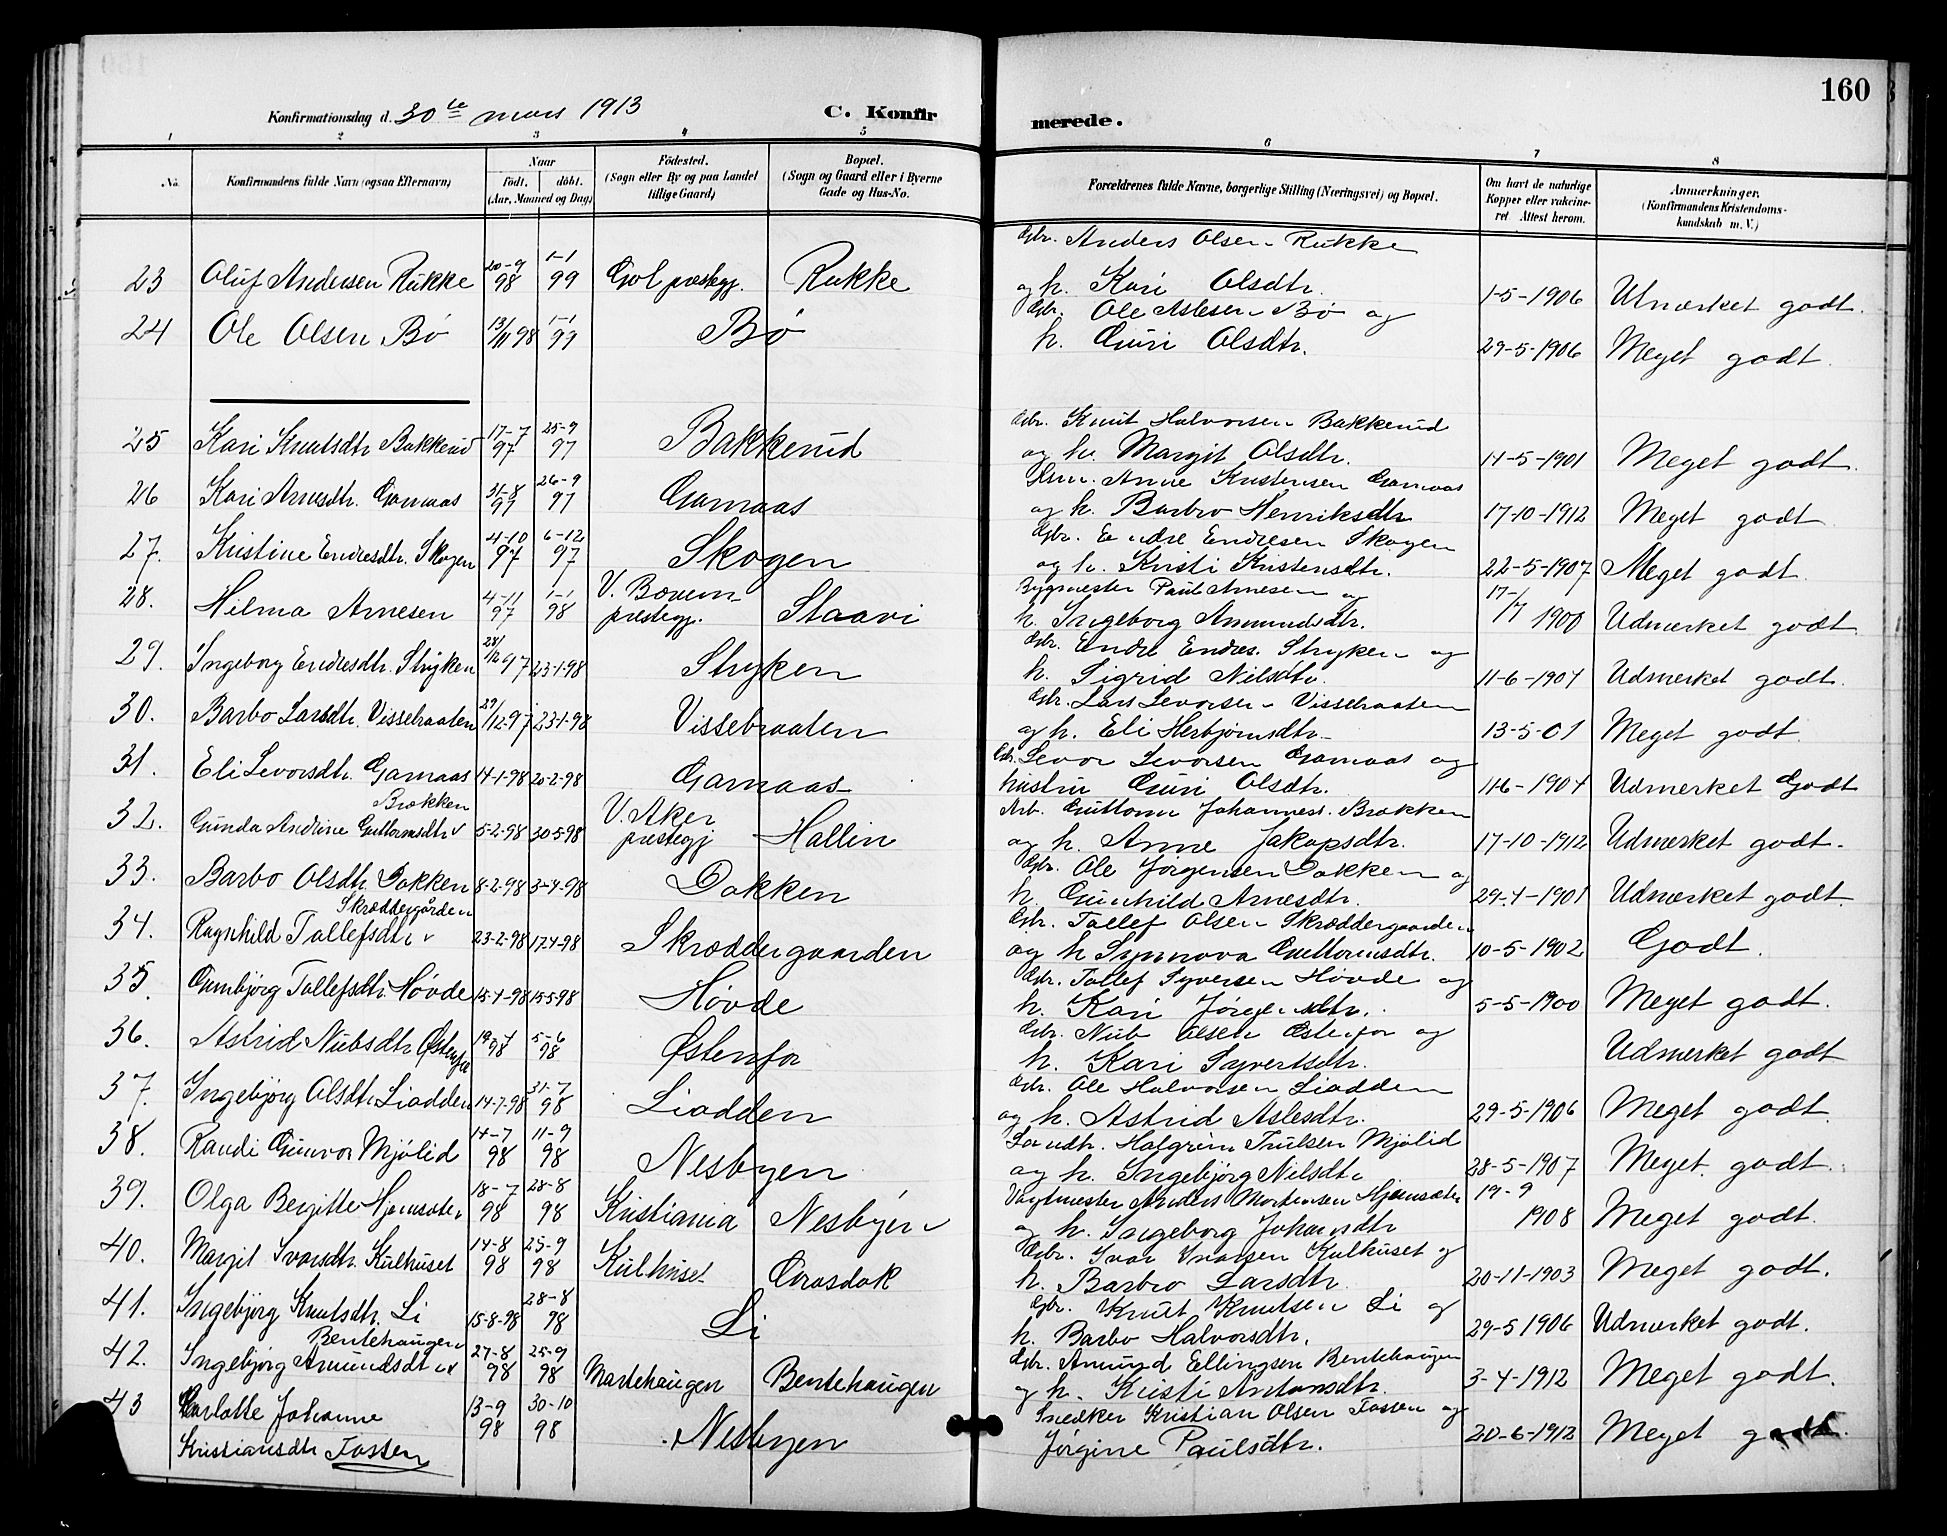 160
Konfirmationsdag d. 30te mars 1913 C. Konfirmerede.
1 2 3 4 5 6 7 8
No. Konfirmandens fulde Navn (ogsaa Efternavn) Naar født. døbt. (Aar, Maaned og Dag) Fødested. (Sogn eller By og paa Landet tillige Gaard) Bopæl. (Sogn og Gaard eller i Byerne Gade og Hus-No. Forældrenes fulde Navne, borgerlige Stilling (Næringsvei) og Bopæl. Om havt de naturlige Kopper eller vakcineret Attest herom. Anmærkninger, (Konfirmandens Kristendomskundskab m. V.)
23 Oluf Andersen Rukke 20-9 98 1-1 99 Gol prestegj. Rukke Gbr. Anders Olsen Rukke og h. Kari Olsdtr. 1-5-1906 Utmerket godt.
24 Ole Olsen Bø 13/11 98 1-1 99 Bø Gbr. Ole Aslesen Bø og h. Guri Olsdtr. 29-5-1906 Meget godt.
25 Kari Knutsdtr Bakkerud 17-7 97 25-9 97 Bakkerud Gbr. Knut Halvorsen Bakkerud og h. Margit Olsdtr. 14-5-1901 Meget godt.
26 Kari Arnesdtr. Garnaas 31-8 97 26-9 97 Garnaas Arne Kristensen Garnaas og h. Barbro Henriksdtr 17-10-1912 Meget godt.
27. Kristine Endresdtr. Skogen 4-10 97 6-12 97 Skogen Gbr. Endre Endresen Skogen og h. Kristi Kristensdtr. 22-5-1907 Meget godt.
28. Hilma Arnesen 4-11 97 1-1 98 V. Bærum prestegj. Staavi Bygmester Paul Arnesen og h. Ingeborg Amundsdtr. 17-/7 1900 Udmerket godt.
29. Ingeborg Endresdtr. Stryken 28/12 97 23-1-98 Stryken Gbr. Endre Endres. Stryken og h. Sigrid Nilsdtr. 11-6-1904 Udmerket godt.
30. Barbo Larsdtr. Vissebraaten 29/12-97 23-1-98 Vissebraaten Gbr. Lars Levorsen Vissebraaten og h. Eli Herbjørnsdtr. 13-5-01 Meget godt.
31. Eli Levorsdtr. Garnaas 14-1-98 20-2-98 Garnaas Gbr. Levor Levorsen Garnaas og hustru Guri Olsdtr. 11-6-1904 Udmerket Godt
32. Gunda Andrine Guttormsdtr Brækken 5-2-98 30-5-98 V. Aker prestegj Hallin Arb. Guttorm Johannes. Brækken og h. Anne Jakopsdtr. 17-10-1912 Udmerket godt.
33. Barbo Olsdtr. Dokken 8-2-98 3-4-98 Dokken Gbr. Ole Jørgensen Dokken og h. Gunhild Arnesdtr. 29-4-1901 Udmerket godt.
34. Ragnhild Tollefsdtr Skræddergården 23-2-98 17-4-98 Skræddergaarden Gbr. Tollef Olsen Skræddergaarden og h Synnova Guttormsdtr. 10-5-1902 Godt.
35. Gunbjørg Tollefsdtr. Hovde 15-4-98 15-5-98 Hovde Gbr. Tollef Syversen Hovde og h. Kari Jørgensdtr. 5-5-1900 Meget godt.
36. Astrid Nubsdtr Østenfor 19-4 98 5-6 98 Østenfor Gbr. Nub Olsen Østenfor og h. Kari Syvertsdtr. Udmerket godt
37. Ingebjørg Olsdtr. Liodden 14-7-98 31-7 98 Liodden Gbr. Ole Halvorsen Liodden og h. Astrid Aslesdtr. 29-5-1906 Meget godt.
38. Randi Gunvor Mjølid 14-7 98 11-9 98 Nesbyen Landh. Halgrim Trulsen Mjølid og h. Ingebjørg Nilsdtr 28-5-1907 Meget godt.
39. Olga Bergitte Hjemsæter 18-7 98 28-8 98 Kristiania Nesbyen Vagtmester Anders Mortensen Hjemsæter og h. Ingeborg Johansdtr 19-9 1908 Meget godt.
40. Margit Ivarsdtr. Kulhuset 14-8 98 25-9 98 Kulhuset Grasdok Gbr. Ivar Ivarsen Kulhuset og h. Barbro Larsdtr. 20-11-1903 Meget godt.
41. Ingebjørg Knutsdtr. Li 15-8-98 28-8 98 Li Gbr. Knut Knutsen Li og h. Barbo Halvorsdtr. 29-5 1906 Udmerket godt.
42. Ingebjørg Amundsdtr Bentehaugen 27-8 98 25-9 98 Martehaugen Bentehaugen Gbr. Amund Ellingsen Bentehaugen og h. Kristi Antonsdtr. 3-4-1912 Meget godt.
43 Carlotte Johanne Kristiansdtr Tossen 13-9 98 30-10 98 Nesbyen Snedker Kristian Olsen Tossen og Jørgine Paulsdtr. 20-6-1912 Meget godt.